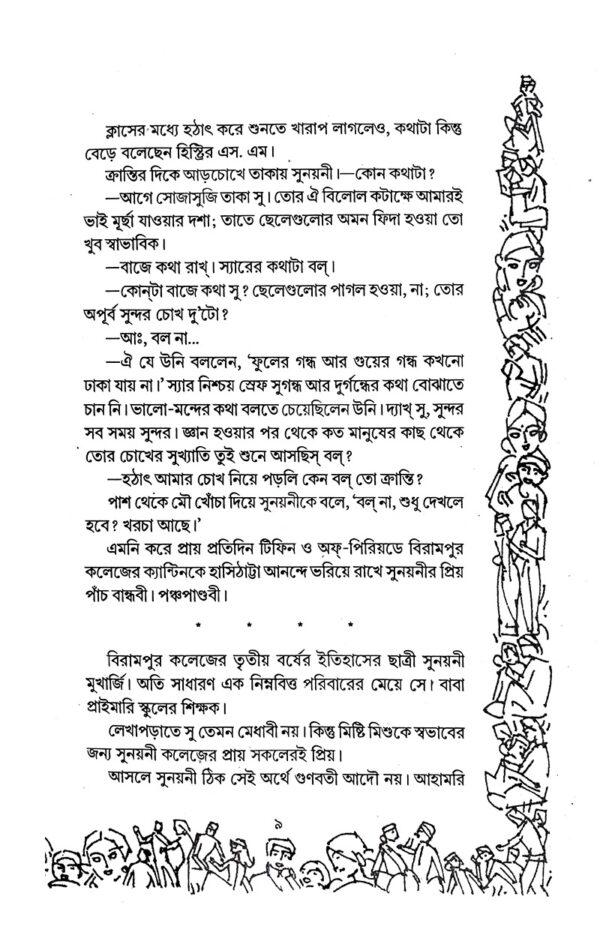 ক্লাসের মধ্যে হঠাৎ করে শুনতে খারাপ লাগলেও, কথাটা কিন্তু
বেড়ে বলেছেন হিস্ট্রির এস. এম।
ক্রান্তির দিকে আড়চোখে তাকায় সুনয়নী।—কোন কথাটা?
—আগে সোজাসুজি তাকা সু। তোর ঐ বিলোল কটাক্ষে আমারই
ভাই মূর্ছা যাওয়ার দশা; তাতে ছেলেগুলোর অমন ফিদা হওয়া তো
খুব স্বাভাবিক।
—বাজে কথা রাখ্। স্যারের কথাটা বল্।
—কোন্‌টা বাজে কথা সু? ছেলেগুলোর পাগল হওয়া, না; তোর
অপূর্ব সুন্দর চোখ দু'টো?
—আঃ, বল না...
—ঐ যে উনি বললেন, 'ফুলের গন্ধ আর গুয়ের গন্ধ কখনো
ঢাকা যায় না।' স্যার নিশ্চয় স্রেফ সুগন্ধ আর দুর্গন্ধের কথা বোঝাতে
চান নি। ভালো-মন্দের কথা বলতে চেয়েছিলেন উনি। দ্যাখ্ সু, সুন্দর
সব সময় সুন্দর। জ্ঞান হওয়ার পর থেকে কত মানুষের কাছ থেকে
তোর চোখের সুখ্যাতি তুই শুনে আসছিস্ বল্?
—হঠাৎ আমার চোখ নিয়ে পড়লি কেন বল্ তো ক্রান্তি?
পাশ থেকে মৌ খোঁচা দিয়ে সুনয়নীকে বলে, 'বল্ না, শুধু দেখলে
হবে? খরচা আছে।'
এমনি করে প্রায় প্রতিদিন টিফিন ও অফ্-পিরিয়ডে বিরামপুর
কলেজের ক্যান্টিনকে হাসিঠাট্টা আনন্দে ভরিয়ে রাখে সুনয়নীর প্রিয়
পাঁচ বান্ধবী। পঞ্চপাণ্ডবী।
* * * *
বিরামপুর কলেজের তৃতীয় বর্ষের ইতিহাসের ছাত্রী সুনয়নী
মুখার্জি। অতি সাধারণ এক নিম্নবিত্ত পরিবারের মেয়ে সে। বাবা
প্রাইমারি স্কুলের শিক্ষক।
লেখাপড়াতে সু তেমন মেধাবী নয়। কিন্তু মিষ্টি মিশুকে স্বভাবের
জন্য সুনয়নী কলেজের প্রায় সকলেরই প্রিয়।
আসলে সুনয়নী ঠিক সেই অর্থে গুণবতী আদৌ নয়। আহামরি
৯